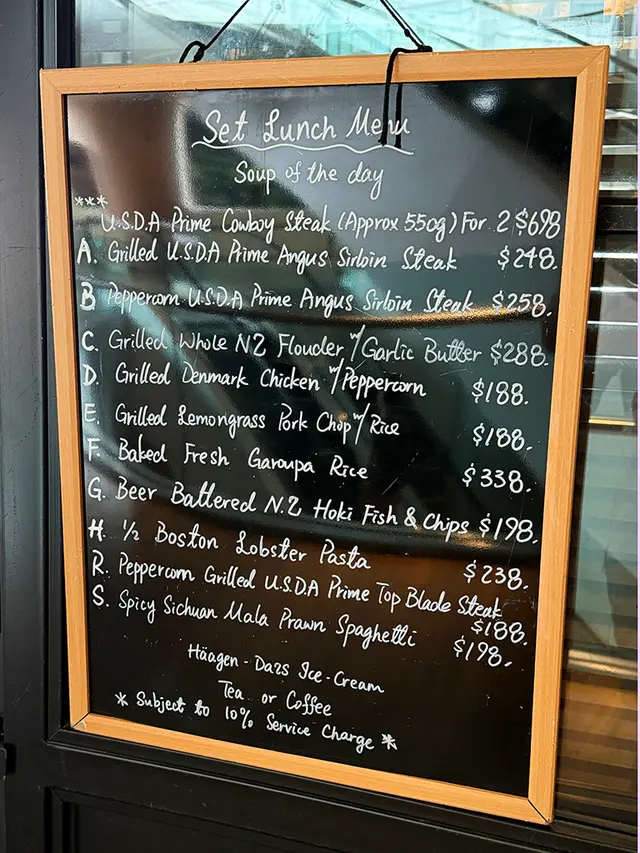 Set Lunch Menu
Soup of the day
***
U.S.D.A Prime Cowboy Steak (Approx 550g) For 2 $698
A. Grilled U.S.D.A Prime Angus Sirloin Steak $248.
B Peppercorn U.S.D.A Prime Angus Sirloin Steak $258.
C. Grilled Whole NZ Flounder w/Garlic Butter $288.
D. Grilled Denmark Chicken w/Peppercorn $188.
E. Grilled Lemongrass Pork Chop w/ Rice $188.
F. Baked Fresh Garoupa Rice $338.
G. Beer Battered N.Z Hoki Fish & Chips $198.
H. ½ Boston Lobster Pasta $238.
R. Peppercorn Grilled U.S.D.A Prime Top Blade Steak
$188.
S. Spicy Sichuan Mala Prawn Spaghetti $198.
Häagen-Dazs Ice-Cream
Tea or Coffee
* Subject to 10% Service Charge *